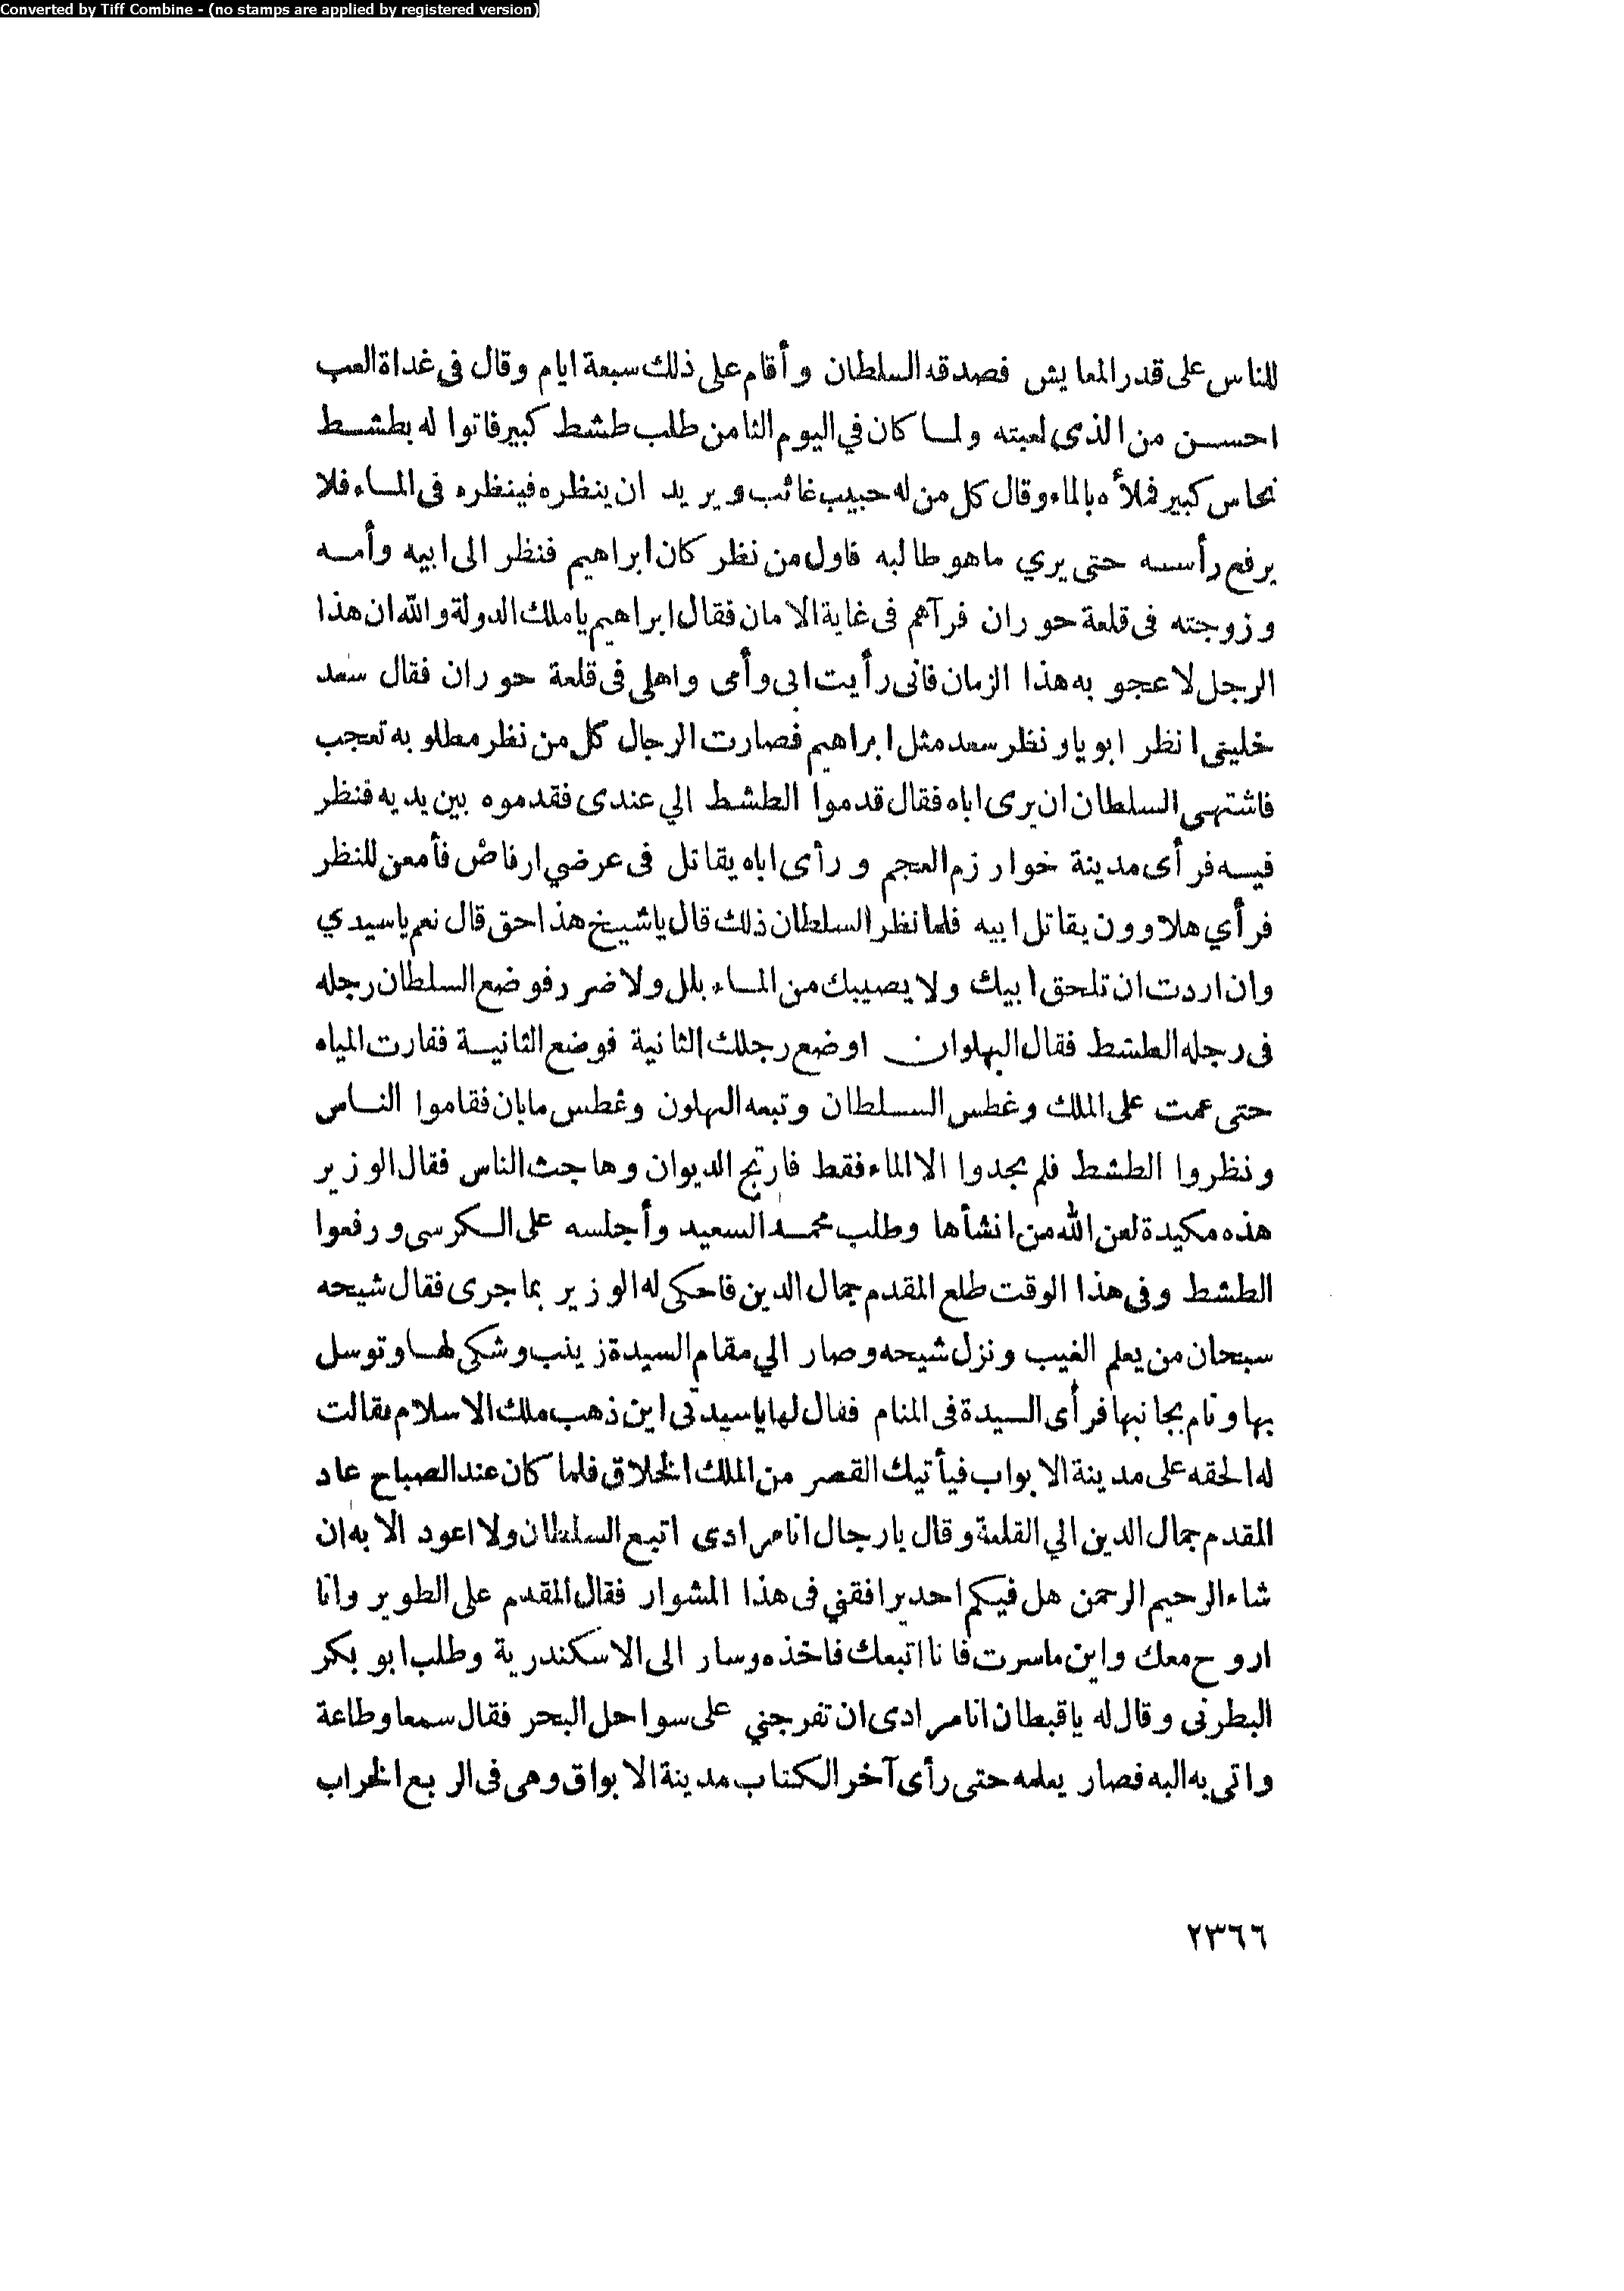 Converted by Tiff Combine - (no stamps are applied by registered version)
للناس على قدر المعايش فصدقه السلطان وأقام على ذلك سبعة ايام وقال فى غداة العب
احسن من الذى لعبته ولما كان في اليوم الثامن طلب طشط كبير فاتوا له بطشط
نحاس كبير فملأه بالماء وقال كل من له حبيب غائب ويريد ان ينظره فينظره فى الماء فلا
يرفع رأسه حتى يري ماهو طالبه فاول من نظر كان ابراهيم فنظر الى ابيه وأمه
وزوجته فى قلعة حوران فرآهم فى غاية الامان فقال ابراهيم ياملك الدولة والله ان هذا
الرجل لاعجو به هذا الزمان فانى رأيت ابى وأمى واهلى فى قلعة حوران فقال سعد
خلينى انظر ابويا ونظر سعد مثل ابراهيم فصارت الرجال كل من نظر مطلوبه تعجب
فاشتهى السلطان ان يرى اباه فقال قدموا الطشط الي عندى فقدموه بين يديه فنظر
فيه فرأى مدينة خوارزم العجم ورأى اباه يقاتل فى عرضي ارفاض فأمعن للنظر
فرأي هلاوون يقاتل ابيه فلما نظر السلطان ذلك قال ياشيخ هذا حق قال نعم ياسيدي
وان اردت ان تلحق ابيك ولا يصيبك من الماء بلل ولا ضرر فوضع السلطان رجله
فى رجله الطشط فقال البهلوان اوضع رجلك الثانية فوضع الثانية ففارت المياه
حتى عمت على الملك وغطس السلطان وتبعه البهلون وغطس مابان فقاموا الناس
ونظروا الطشط فلم يجدوا الا الماء فقط فارتج الديوان وهاجت الناس فقال الوزير
هذه مكيدة لعن الله من انشأها وطلب محمد السعيد وأجلسه على الكرسى ورفعوا
الطشط وفى هذا الوقت طلع المقدم جمال الدين فاحكى له الوزير بما جرى فقال شيحه
سبحان من يعلم الغيب ونزل شيحه وصار الي مقام السيدة زينب وشكى لها وتوسل
بها ونام بجانبها فرأى السيدة فى المنام فقال لها ياسيدتى اين ذهب ملك الاسلام فقالت
له الحقه على مدينة الابواب فيأتيك القصر من الملك الخلاق فلما كان عند الصباح عاد
المقدم جمال الدين الي القلعة وقال يارجال انا مرادى اتبع السلطان ولا اعود الا به ان
شاء الرحيم الرحمن هل فيكم احد يرافقني فى هذا المشوار فقال المقدم على الطوير وانا
اروح معك واين ماسرت فانا اتبعك فاخذه وسار الى الاسكندرية وطلب ابو بكر
البطرنى وقال له ياقبطان انا مرادى ان تفرجني على سواحل البحر فقال سمعا وطاعة
واتى به اليه فصار يعلمه حتى رأى آخر الكتاب مدينة الابواق وهى فى الربع الخراب
٢٣٦٦